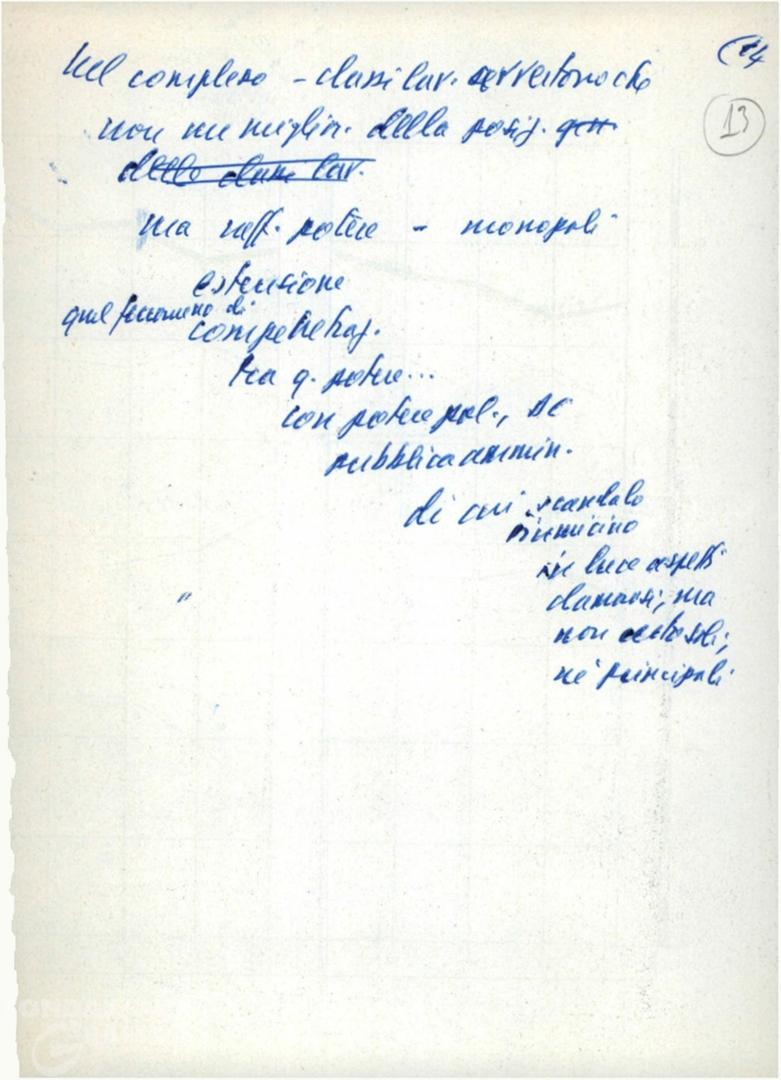 Nel complesso - classi lav. avvertono che
14
non un miglior. della posiz. gen
13
delle classi lav.
ma raff. potere - monopoli
estensione
quel fenomeno di
compenetraz.
tra q. potere...
con potere pol., DC
pubblica ammin.
di cui scandalo
Fiumicino
in luce aspetti
clamorosi, ma
non certo soli,
né principali
"